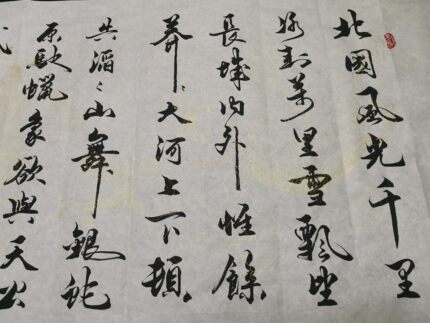 北國風光千里
冰封萬里雪飄望
長城内外惟餘
莽〻大河上下頓
失滔〻山舞銀蛇
原馳蠟象欲與天公